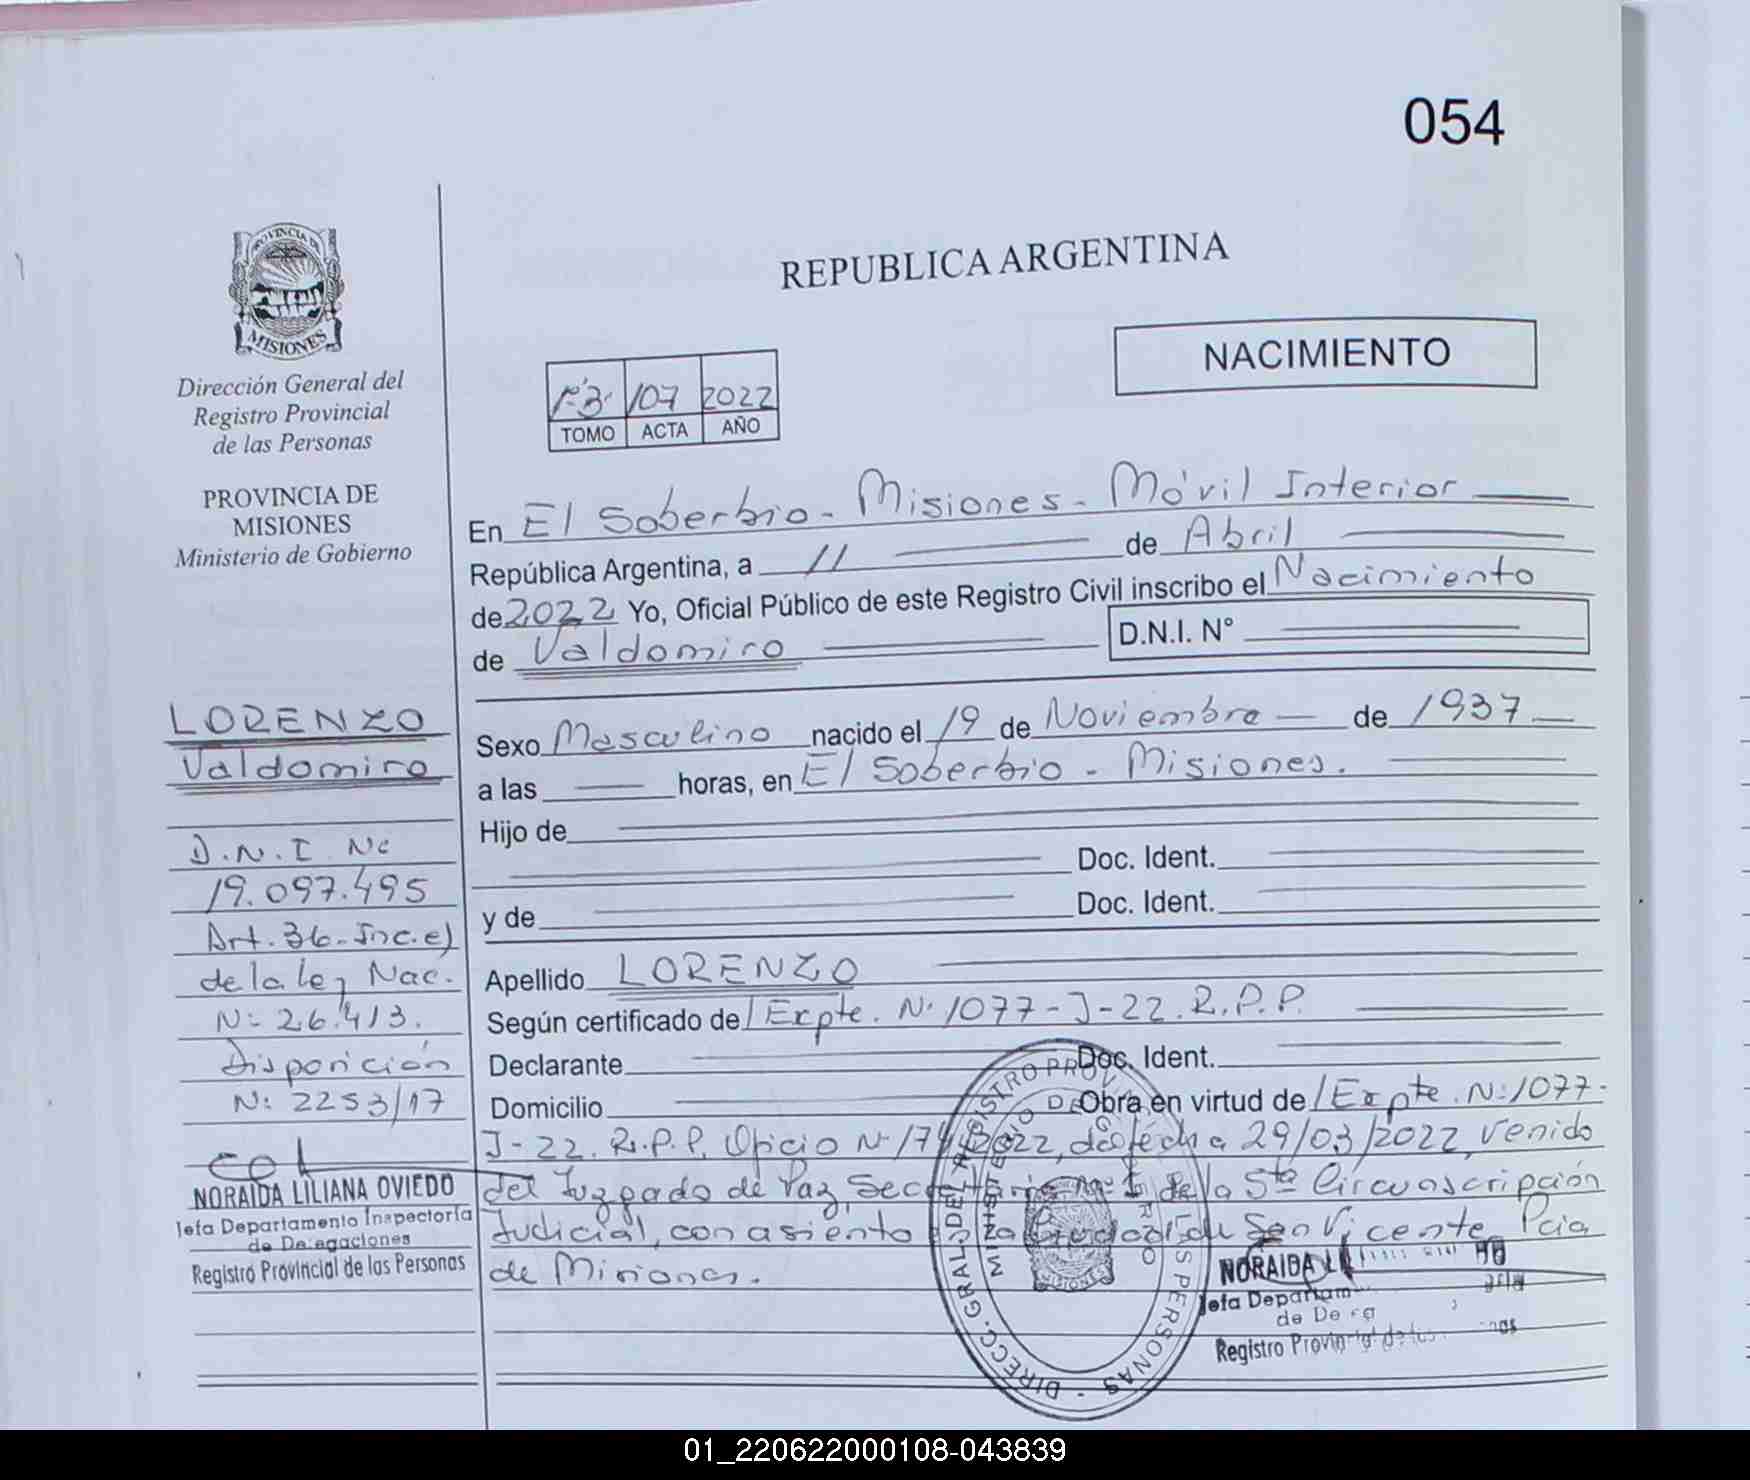 054
PROVINCIA DE
MISIONES
Dirección General del
Registro Provincial
de las Personas
PROVINCIA DE
MISIONES
Ministerio de Gobierno
LORENZO
Valdomiro
D.N.I Nº
19.097.495
Art. 36-Inc.e)
de la Ley Nac.
Nº 26.413.
Disposición
Nº 2253/17
NORAIDA LILIANA OVIEDO
Jefa Departamento Inspectoría
de Delegaciones
Registro Provincial de las Personas
REPUBLICA ARGENTINA
NACIMIENTO
107 2022
TOMO ACTA AÑO
En El Soberbio - Misiones - Móvil Interior
República Argentina, a 11 de Abril
de 2022 Yo, Oficial Público de este Registro Civil inscribo el Nacimiento
de Valdomiro D.N.I. N°
Sexo Masculino nacido el 19 de Noviembre de 1937
a las horas, en El Soberbio - Misiones.
Hijo de
Doc. Ident.
y de Doc. Ident.
Apellido LORENZO
Según certificado de Expte. Nº 1077-J-22. R.P.P.
Declarante Doc. Ident.
Domicilio Obra en virtud de Expte. Nº 1077-
J-22. R.P.P. Oficio Nº 2022, de fecha 29/03/2022, venido
del Juzgado de Paz, Secretaría Nº 1 de la 5ta Circunscripción
Judicial, con asiento en la Ciudad de San Vicente, Pcia
de Misiones.
DIRECC. GRAL. DEL REGISTRO PROVINCIAL DE LAS PERSONAS
MINISTERIO DE GOBIERNO
MISIONES
NORAIDA
Jefa Departam
de
Registro
01_220622000108-043839